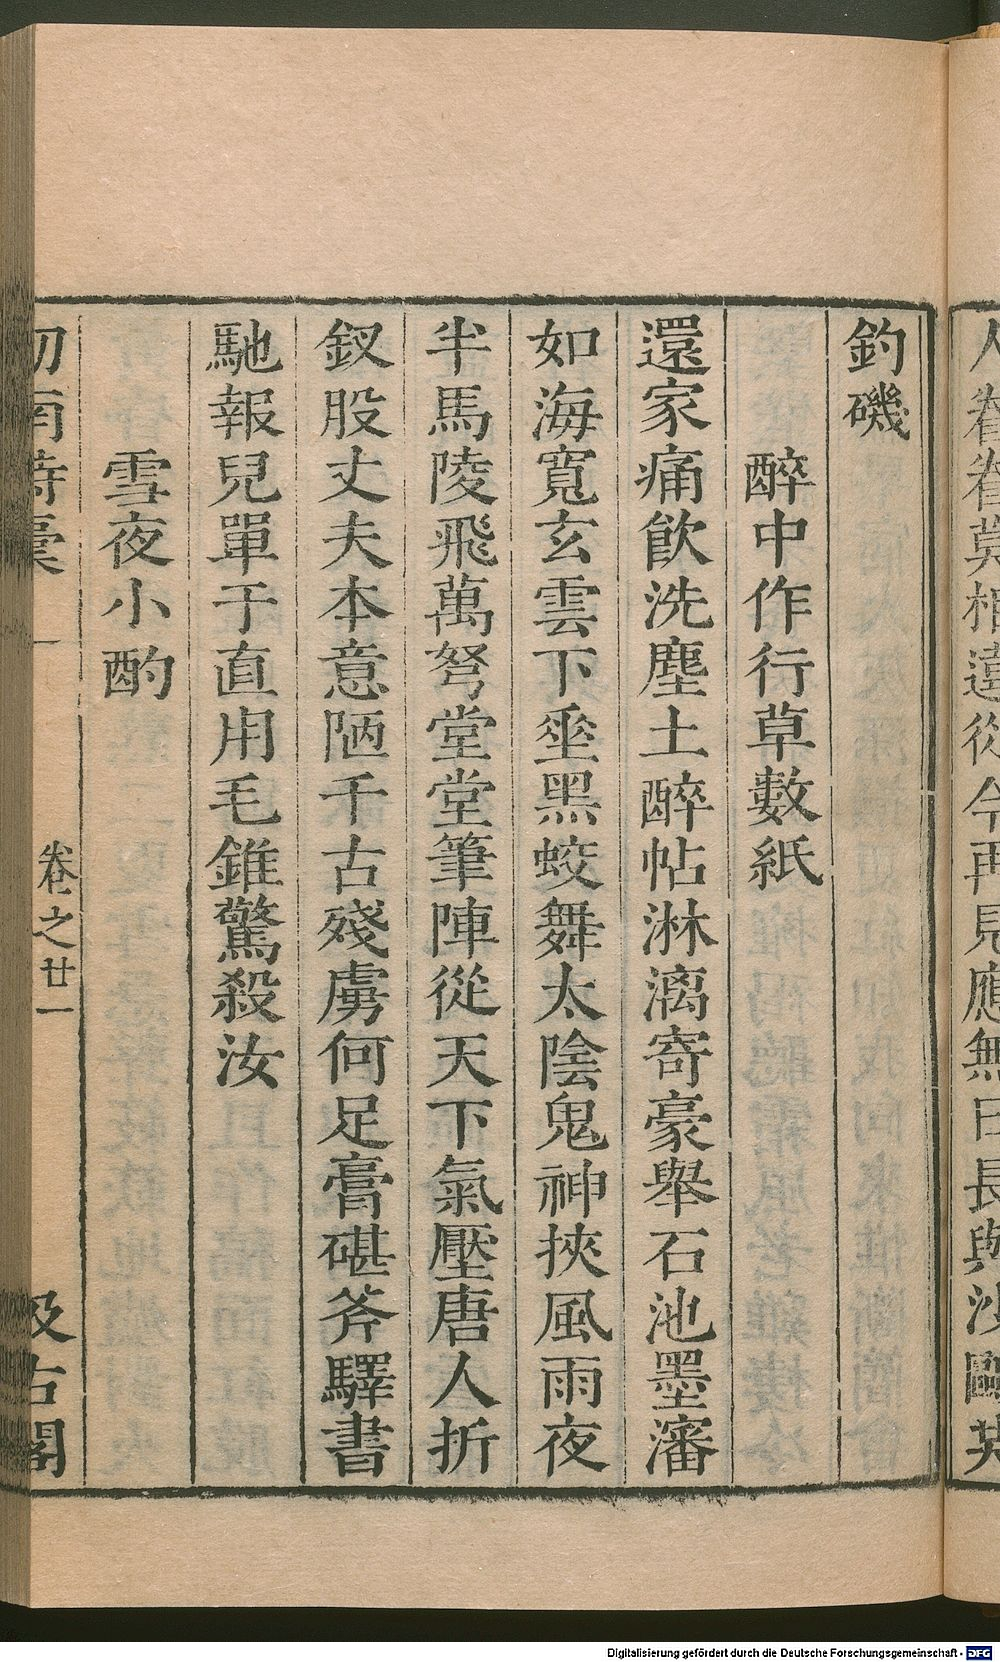 人眷眷莫相違從今再見應無日長與沙鷗共
釣磯
醉中作行草數紙
還家痛飲洗塵土醉帖淋漓寄豪舉石池墨瀋
如海寬玄雲下垂黑蛟舞太陰鬼神挾風雨夜
半馬陵飛萬弩堂堂筆陣從天下氣壓唐人折
釵股丈夫本意陋千古殘虜何足膏碪斧驛書
馳報兒單于直用毛錐驚殺汝
雪夜小酌
劒南詩稾 卷之廿一 汲古閣
Digitalisierung gefördert durch die Deutsche Forschungsgemeinschaft - DFG